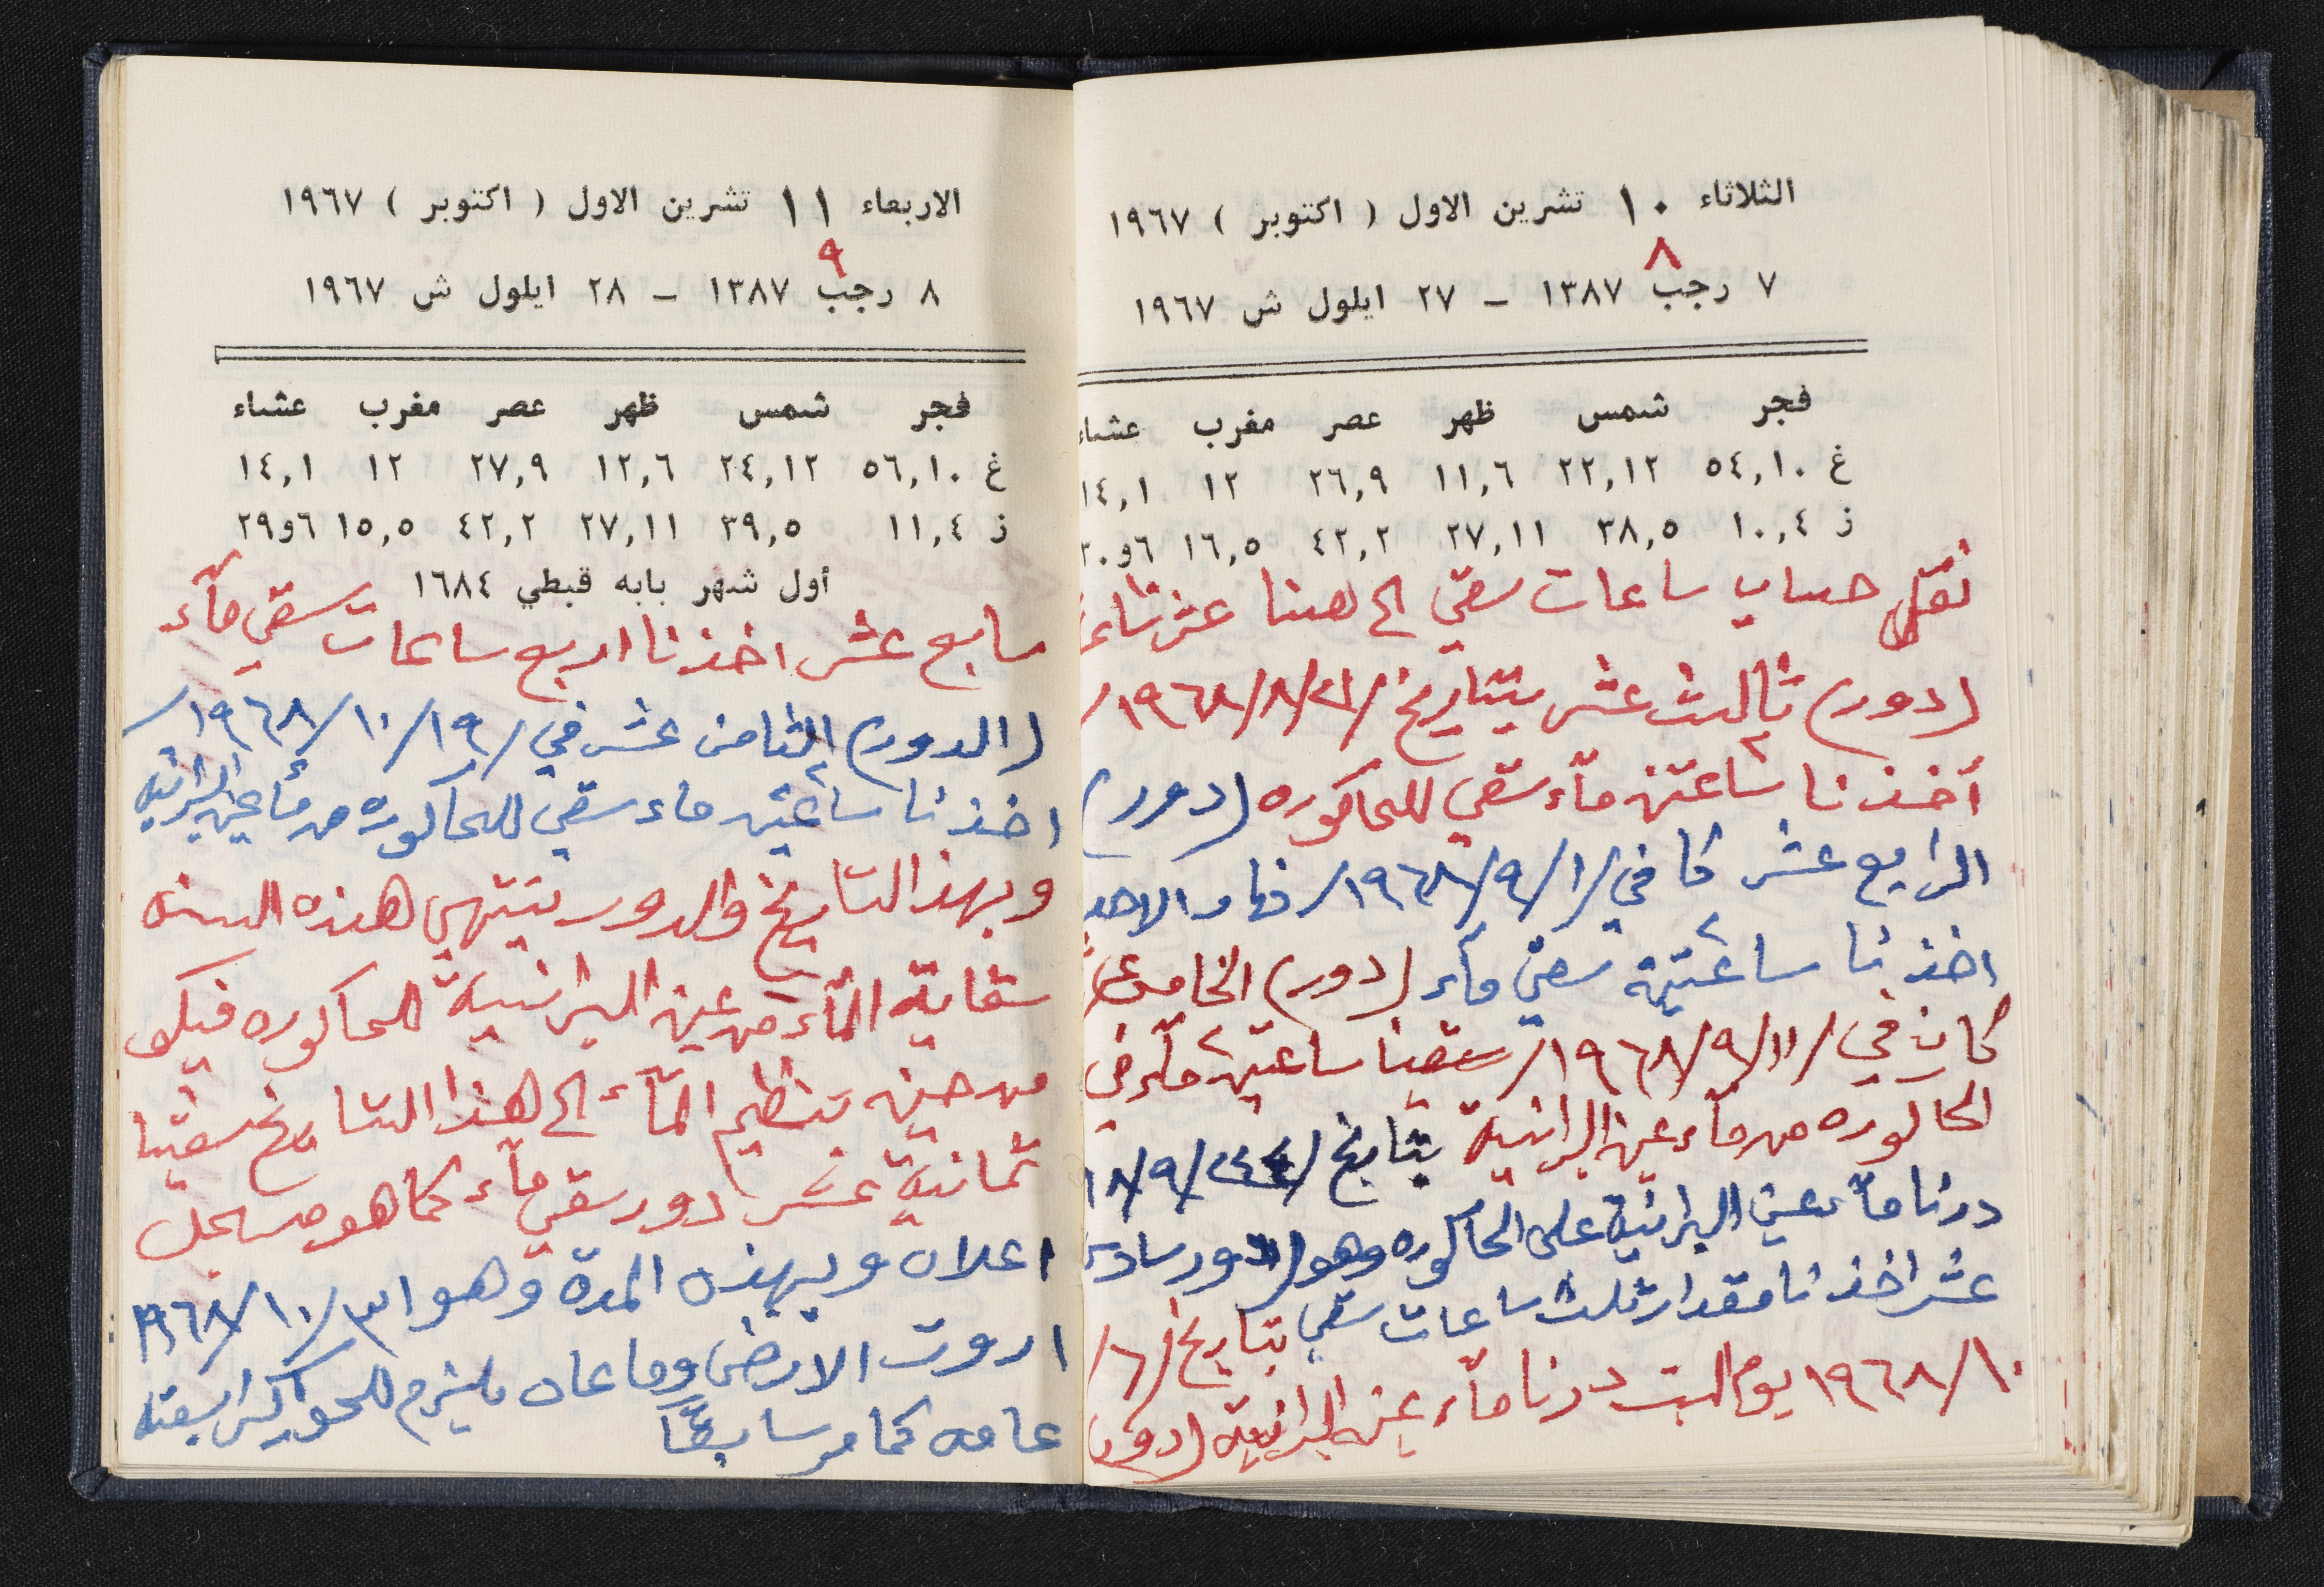 الثلاثاء ١٠ تشرين الاول ( اكتوبر ) ١٩٦٧
٨
٧ رجب ١٣٨٧ – ٢٧ ايلول ش ١٩٦٧
فجر شمس ظهر عصر مغرب عشاء
غ ٥٤,١٠ ٢٢,١٢ ١١,٦ ٢٦,٩ ١٢ ١٤,١
ز ١٠,٤ ٣٨,٥ ٢٧,١١ ٤٢,٢ ١٦,٥ ٦و٣٠
نقل حساب ساعات سقي الى هنا عن
(دور) ثالث عشر بتاريخ /٢١/٨/١٩٦٨/
أخذنا ساعتين مآء سقي للحاكوره (دور)
الرابع عشر كا في /١/٩/١٩٦٨/ نهار الاحد
اخذنا ساعتين سقي مآء (دور) الخامس
كان في /١١/٩/١٩٦٨/ سقينا ساعتين مآء في
الحاكوره من مآء عين البرانية بتاريخ
درنا مآء عين البرانية على الحاكوره وهو (دور سادس
عشر اخذنا مقدار ثلث ساعات سقي بتاريخ /٦/
١٠/١٩٦٨ يوم السبت درنا مآء عين البرانية (دور)
الاربعاء ١١ تشرين الاول ( اكتوبر ) ١٩٦٧
٩
٨ رجب ١٣٨٧ – ٢٨ ايلول ش ١٩٦٧
فجر شمس ظهر عصر مغرب عشاء
غ ٥٦,١٠ ٢٤,١٢ ١٢,٦ ٢٧,٩ ١٢ ١٤,١
ز ١١,٤ ٣٩,٥ ٢٧,١١ ٤٢,٢ ١٥,٥ ٦و٢٩
أول شهر بابه قبطي ١٦٨٤
سابع عشر اخذنا اربع ساعات سقي مآء
(الدور) الثامن عشر في /١٩/١٠/١٩٦٨/
اخذنا ساعتين ماء سقي للحاكوره من مأ عين البرانيه
وبهذا التاريخ والدور ينتهي هذه السنه
سقاية المآء من عين البرانية للحاكوره فيكو
من حين تنظيم المآء الى هذا التاريخ سقينا
ثمانية عشر دور سقي مآء كما هو مسجل
اعلان وبهذه المدة وهو ٣١/١٠/١٩٦٨
اروت الارض وما عاد يلزم للحواكير سقيه
عامه كما مر سابقًا